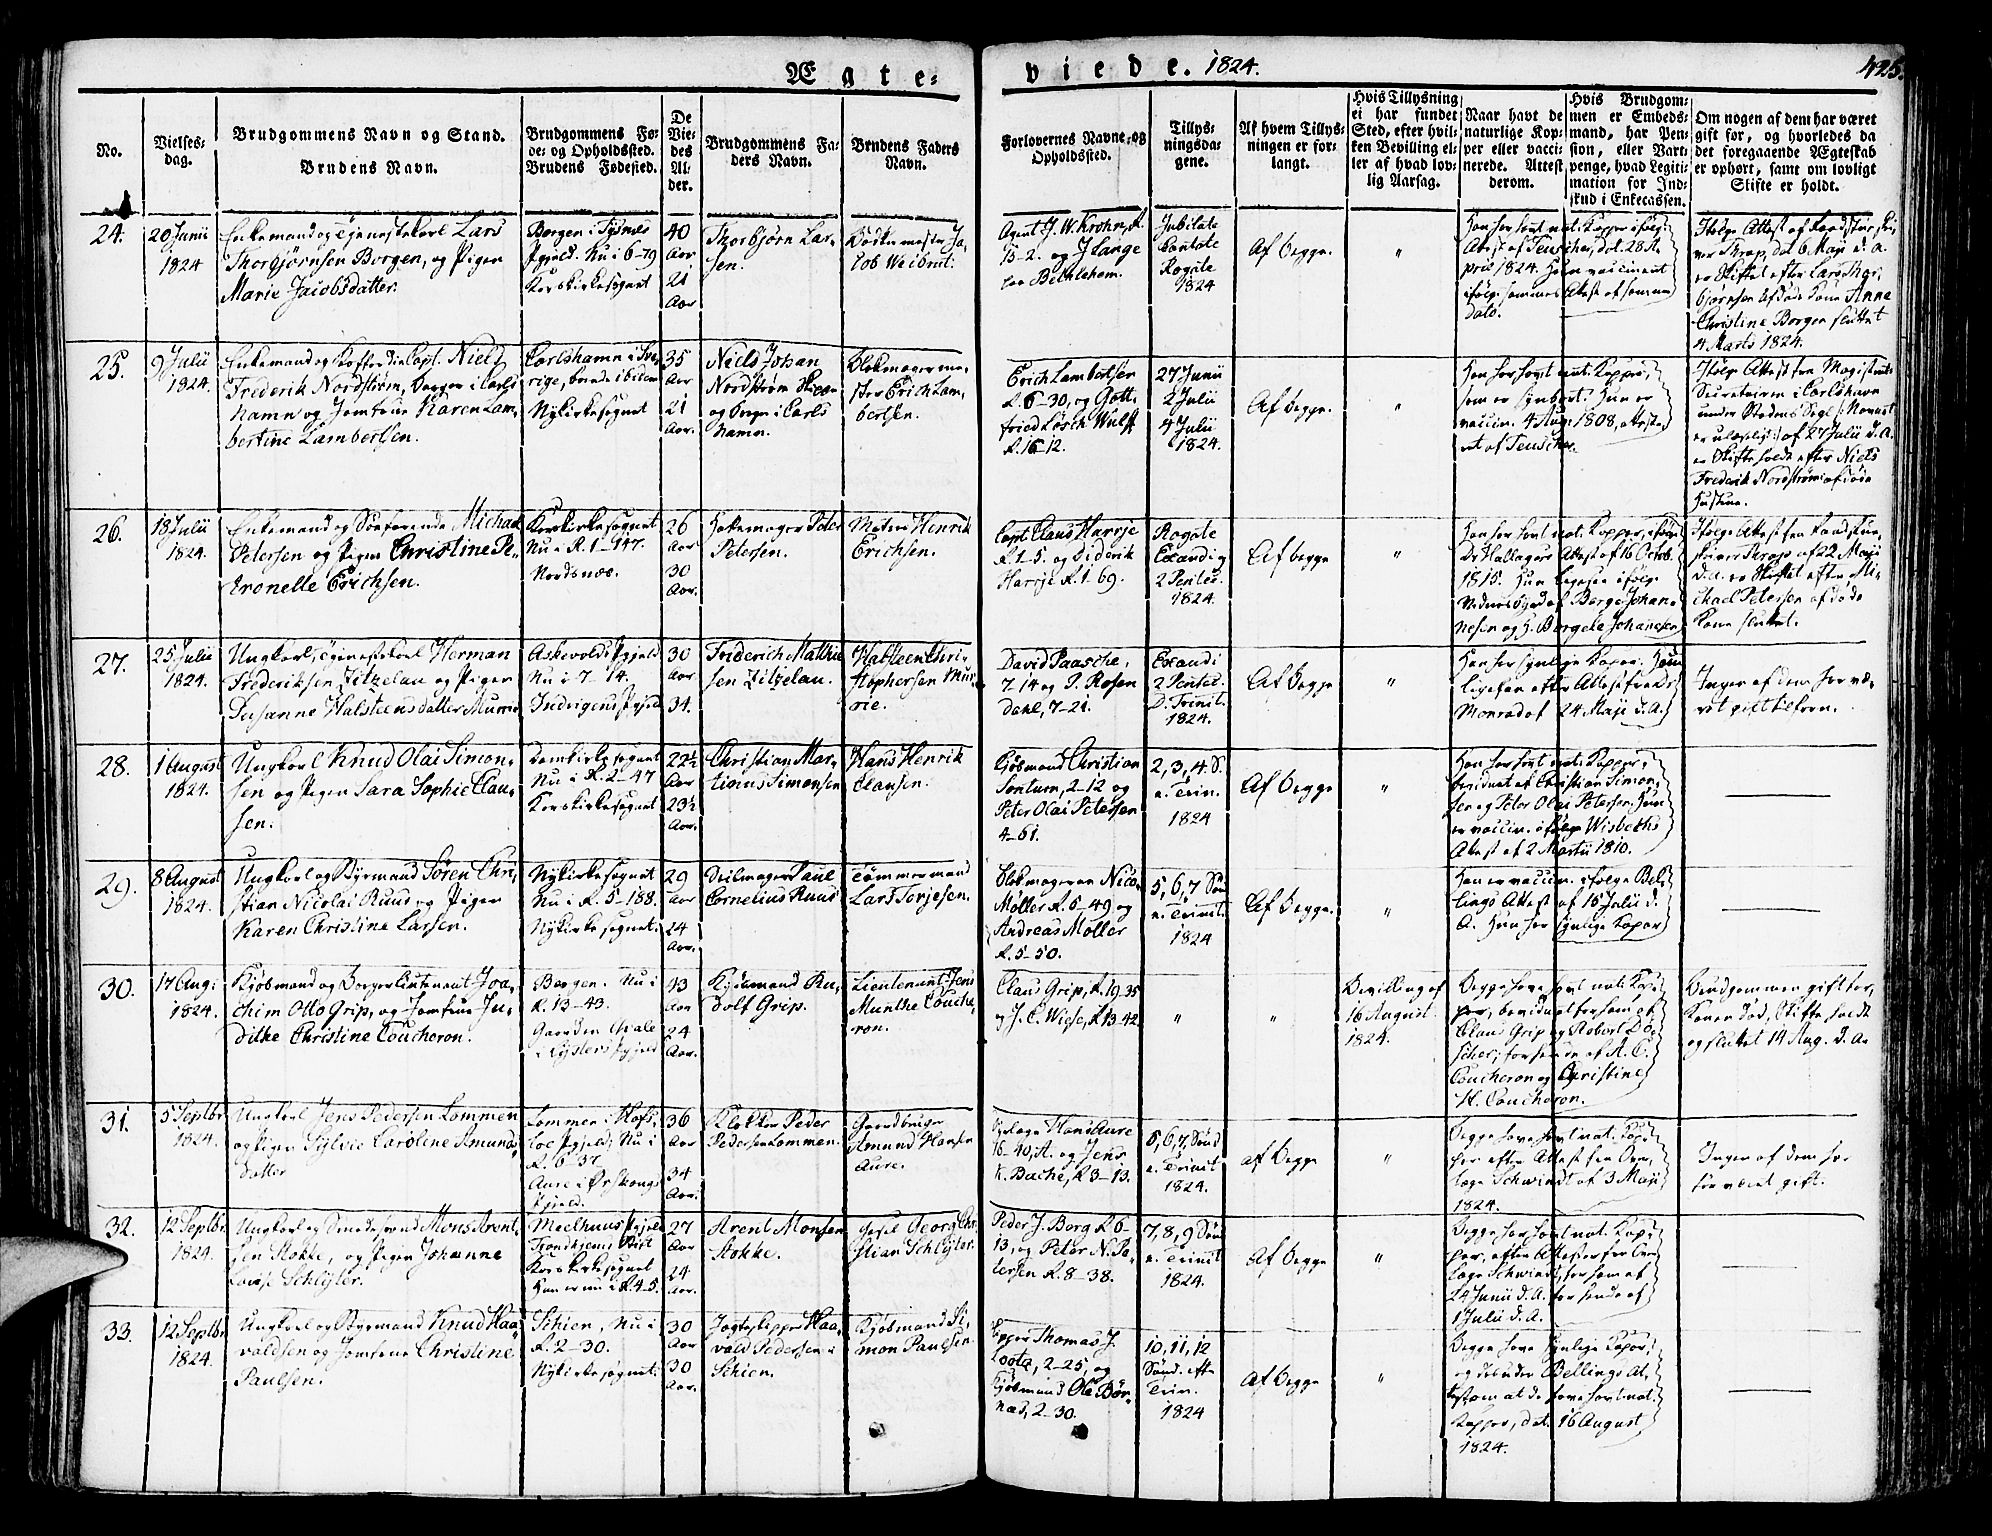 Ægte-
viede. 1824.
425.
No.
Vielses-
dag.
Brudgommens Navn og Stand.
Brudens Navn.
Brudgommens Fø-
de- og Opholdssted.
Brudens Fødested.
De
Vie-
des
Al-
der.
Brudgommens Fa-
ders Navn.
Brudens Faders
Navn.
Forlovernes Navne, og
Opholdssted.
Tillys-
ningsda-
gene.
Af hvem Tillys-
ningen er for-
langt.
Hvis Tillysning
ei har fundet
Sted, efter hvil-
ken Bevilling el-
ler af hvad lov-
lig Aarsag.
Naar havt de
naturlige Kop-
per eller vacci-
nerede. Attest
derom.
Hvis Brudgom-
men er Embeds-
mand, har Pen-
sion, eller Vart-
penge, hvad Legiti-
mation for Ind-
skud i Enkecassen.
Om nogen af dem har været
gift før, og hvorledes da
det foregaaende Ægteskab
er ophørt, samt om lovligt
Skifte er holdt.
24.
20 Junii
1824
Enkemand og Tjenestekarl Lars
Thorbjørnsen Borgen, og Pigen
Marie Jacobsdatter.
Borgen i Tysnes
Pgjeld. Nu i 6-79
Korskirkesognet
40
Aar
21
Aar
Thorbjørn Lar-
sen.
Bødkermester Ja-
cob Weibrut.
Agent J. W. Krohn, R.
15-2. og J Lange
paa Bethlehem.
Jubilate
Cantate
Rogate
1824
Af begge.
"
Han har havt nat. Kopper ifølge
Attest af Teuscher, dat. 28 A-
pril 1824. Hun vaccineret
ifølge sammes Attest af samme
dato.
Ifølge Attest af
Thrap, dat 6 Maji d. a.
er Skiftet efter Lars Thor-
bjørnsen Afdøde Kone Anna
Christine Borgen sluttet
4 Marts 1824.
25.
9 Julii
1824.
Enkemand og Kofferdie Capt. Niels
Frederik Nordstrøm, Borger i Carls-
hamn og Jomfrue Karen Lam-
bertine Lambertsen.
Carlshamn i Sve-
rige, boende ibidem
Nykirkesognet
35
Aar
21
Aar.
Niels Johan
Nordstrøm
og Borger i Carls
hamn.
Blokmagerme-
ster Erich Lam-
bertsen.
Erich Lambertsen
R. 6-30, og Gott-
fried Lösch Wulff
R. 16-12.
27 Junii
2 Julii
4 Julii
1824.
Af begge.
"
Han har havt nat. Kopper,
som er synbart. Hun er
vaccin. 4 Aug. 1808, attste-
ret af Teuscher.
Ifølge Attest fra Magistrats
Secretairen i Carlshavn
under Stadens Segl (: Navnet
er ulæseligt :) af 27 Julii d. A.
er Skifte holdt efter Niels
Frederik Nordstrøms afdøde
Hustrue.
26.
18 Julii
1824.
Enkemand og Søefarende Michael
Petersen og Pigen Christine Pe-
tronelle Erichsen.
Korskirkesognet
Nu i R. 1-147.
Nordnæs.
26
Aar
30
Aar.
Peter
Petersen.
Henrik
Erichsen.
Capt. Claus Harrje
R. 1-5. og Diderik
Harrje R. 1. 69.
Rogate
Exaudi og
2 Pentec.
1824.
Af begge
"
Han har havt nat. Kopper, efter
Dr. Hallagers Attest af 16 Octob.
1815. Hun ligesaa ifølge
Vidnesbyrd af Børge Johan-
nesen og H. Borgela Johanesen
Ifølge Attest fra
Thrap af 22 Maji
d. a. er Skiftet efter Mi-
chael Petersens afdøde
Kone sluttet.
27.
25 Julii
1824.
Ungkarl, Tjenestekarl Herman
Frederiksen Zitzelau og Pigen
Susanne Halsteensdatter Murrie
Askevolds Pgjeld
Nu i 7-14.
Indvigens Pgjeld
30
Aar
34.
Friderich Mathie
sen Zitzelau.
Halsteen Chri-
stophersen Mur-
rie.
David Paasche,
7-14 og P. Rosen
dahl, 7-21.
Exaudi
2 Pentec.
D. Trinit.
1824.
Af begge
"
Han har synlige Kopper. Hun
ligesaa efter Attest fra
Monrad af 24 Maji d. A.
Ingen af dem har væ-
ret gift tilforn.
28.
1 August
1824.
Ungkarl Knud Olai Simon-
sen og Pigen Sara Sophie Clau-
sen.
Domkirkesognet
Nu i R. 2-47
Korskirkesognet
22½
Aar
23½
Aar.
Christian Mar-
tinus Simonsen
Hans Henrik
Clausen.
Kjøbmand Christian
Sontum, 2-12 og
Peter Olai Petersen
4-61.
2, 3, 4. S.
e. Trin.
1824
Af begge
"
Han har havt nat. Kopper,
bevidnet af Christian Simon-
sen og Peter Olai Petersen. Hun
er vaccin. ifølge Wisbeths
Attest af 2 Martii 1810.
29.
8 August
1824.
Ungkarl og Styrmand Søren Chri-
stian Nicolai Ruus og Pigen
Karen Christine Larsen.
Nykirkesognet
Nu i R. 5-188.
Nykirkesognet.
29
Aar
24
Aar.
Seilmager Paul
Cornelius Ruus
Tømmermand
Lars Torjesen.
Blokmagerne Nico-
Møller R. 5-49 og
Andreas Møller
R. 5-50.
5, 6, 7 Sønd
e. Trinit.
1824
Af begge.
"
Han er vaccin. ifølge Bel-
lings Attest af 15 Julii d.
A. Hun har synlige Kopper
30.
17 Aug:
1824.
Kjøbmand og Borgerlieutenant Joa-
chim Otto Grip, og Jomfrue Ju-
dithe Christine Coucheron.
Bergen. Nu i
R. 13-43.
Gaarden Qvale
i Lysters Pgjeld
43
Aar
24
Aar.
Kjøbmand Ru-
dolf Grip.
Lieutenant Jens
Munthe Couche-
ron.
Claus Grip, R. 19-35
og J. C. Wiese, R. 13-42.
"
"
Bevilling af
16 August
1824.
Begge have havt nat. Kop-
per, bevidnet for ham af
Claus Grip og Robert Dö-
scher, for hende af A. C.
Coucheron og Christine
H. Coucheron.
Brudgommen gift før,
Konen død, Skifte holdt
og sluttet 14 Aug. d. A.
31.
5 Septbr
1824.
Ungkarl Jens Pedersen Lommen
og Pigen Sylvie Caroline Amunds-
datter
Lommen i Slets
loe Pgjeld; Nu i
R. 6-37
Aure i Ørskougs
Pgjeld.
36
Aar
34
Aar.
Klokker Peder
Pedersen Lommen.
Gaardbruger
Amund Hansen
Aure.
Hans Aure
16-40, A. og Jens
K. Bache, R 3-13.
5, 6, 7, Sønd
e. Trinit.
1824.
af begge
"
Begge have havt nat. Kop-
per efter Attest fra Over-
læge Schwindt af 3 Maji
1824.
Ingen af dem har
før været gift.
32.
12 Septbr
1824.
Ungkarl og Smedesvend Mons Arent-
sen Stokke, og Pigen Johanne
Lovise Schlyter.
Meelhuus Pgjeld
Trondhjems Stift
Korskirkesognet
Han er nu i R. 4-5.
27
Aar
24
Aar.
Arent Monsen
Stokke.
Georg Chri-
stian Schlyter.
Peder J. Borg R. 6-
13, og Peter N. Pe-
tersen R. 8-38.
7, 8, 9 Sønd
e. Trinit
1824.
Af begge
"
Begge har havt nat. Kop-
per, efter Attester fra Over-
læge Schwindt, for ham af
24 Junii d. A. for hende af
1 Julii d. A.
33.
12 Septbr
1824.
Ungkarl og Styrmand Knud Haa-
valdsen og Jomfrue Christine
Paulsen.
Schien, Nu i
R. 2-30.
Nykirkesognet.
30
Aar
30
Aar.
Jagteskipper Haa-
vald Pedersen i
Schien.
Kjøbmand Si-
mon Paulsen
Thomas J.
Loota, 2-25, og
Kjøbmand Ole Bør-
næs, 2-30.
10, 11, 12
Sønd. efter
Trin.
1824
Af begge
"
Begge have synlige Kopper,
og desuden Bellings At-
test om at de have havt nat.
Kopper, dat. 16 August
1824.